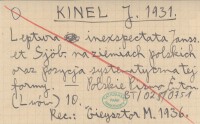 KINEL J. 1931.
Leptura inexpectata Janss.
et Sjöb. na ziemiach polskich
oraz pozycja systematycznej
formy. Polskie Pismo Entom.
(Lwów) 10.
Rec.: Biegszt M. 1936.